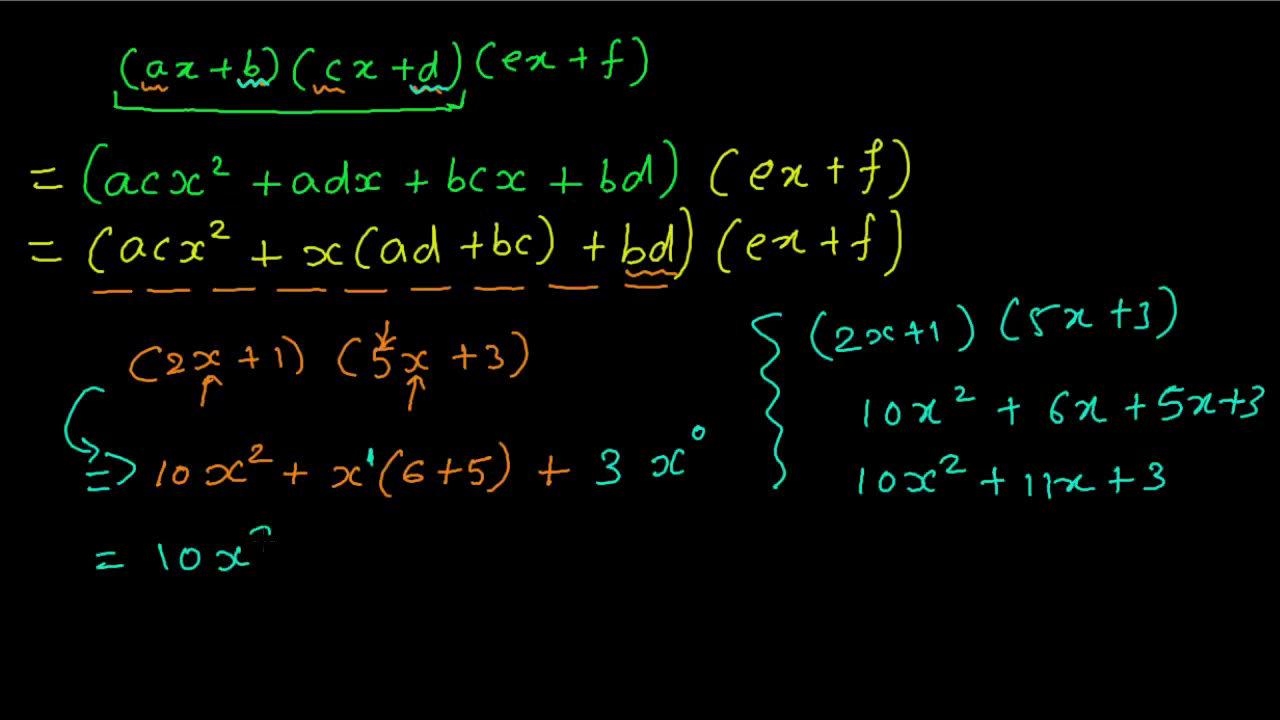 (ax+b)(cx+d)(ex+f)
= (acx² + adx + bcx + bd) (ex + f)
= (acx² + x(ad + bc) + bd) (ex + f)
(2x + 1) (5x + 3)
=> 10x² + x¹(6+5) + 3 x⁰
= 10x²
(2x+1) (5x+3)
10x² + 6x + 5x+3
10x² + 11x + 3